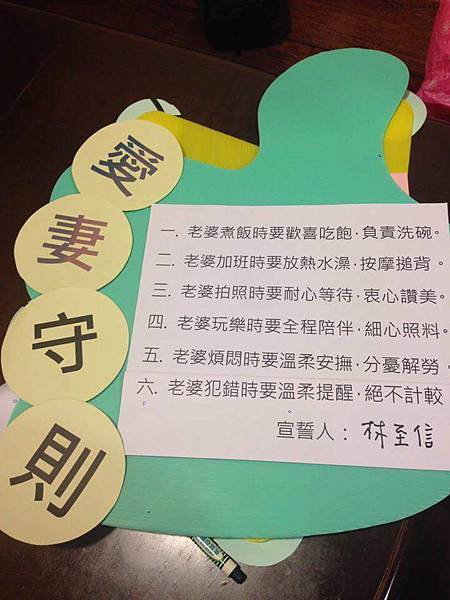 愛妻守則
一. 老婆煮飯時要歡喜吃飽·負責洗碗。
二. 老婆加班時要放熱水澡·按摩搥背。
三. 老婆拍照時要耐心等待·衷心讚美。
四. 老婆玩樂時要全程陪伴·細心照料。
五. 老婆煩悶時要溫柔安撫·分憂解勞。
六. 老婆犯錯時要溫柔提醒·絕不計較
宣誓人：林至信